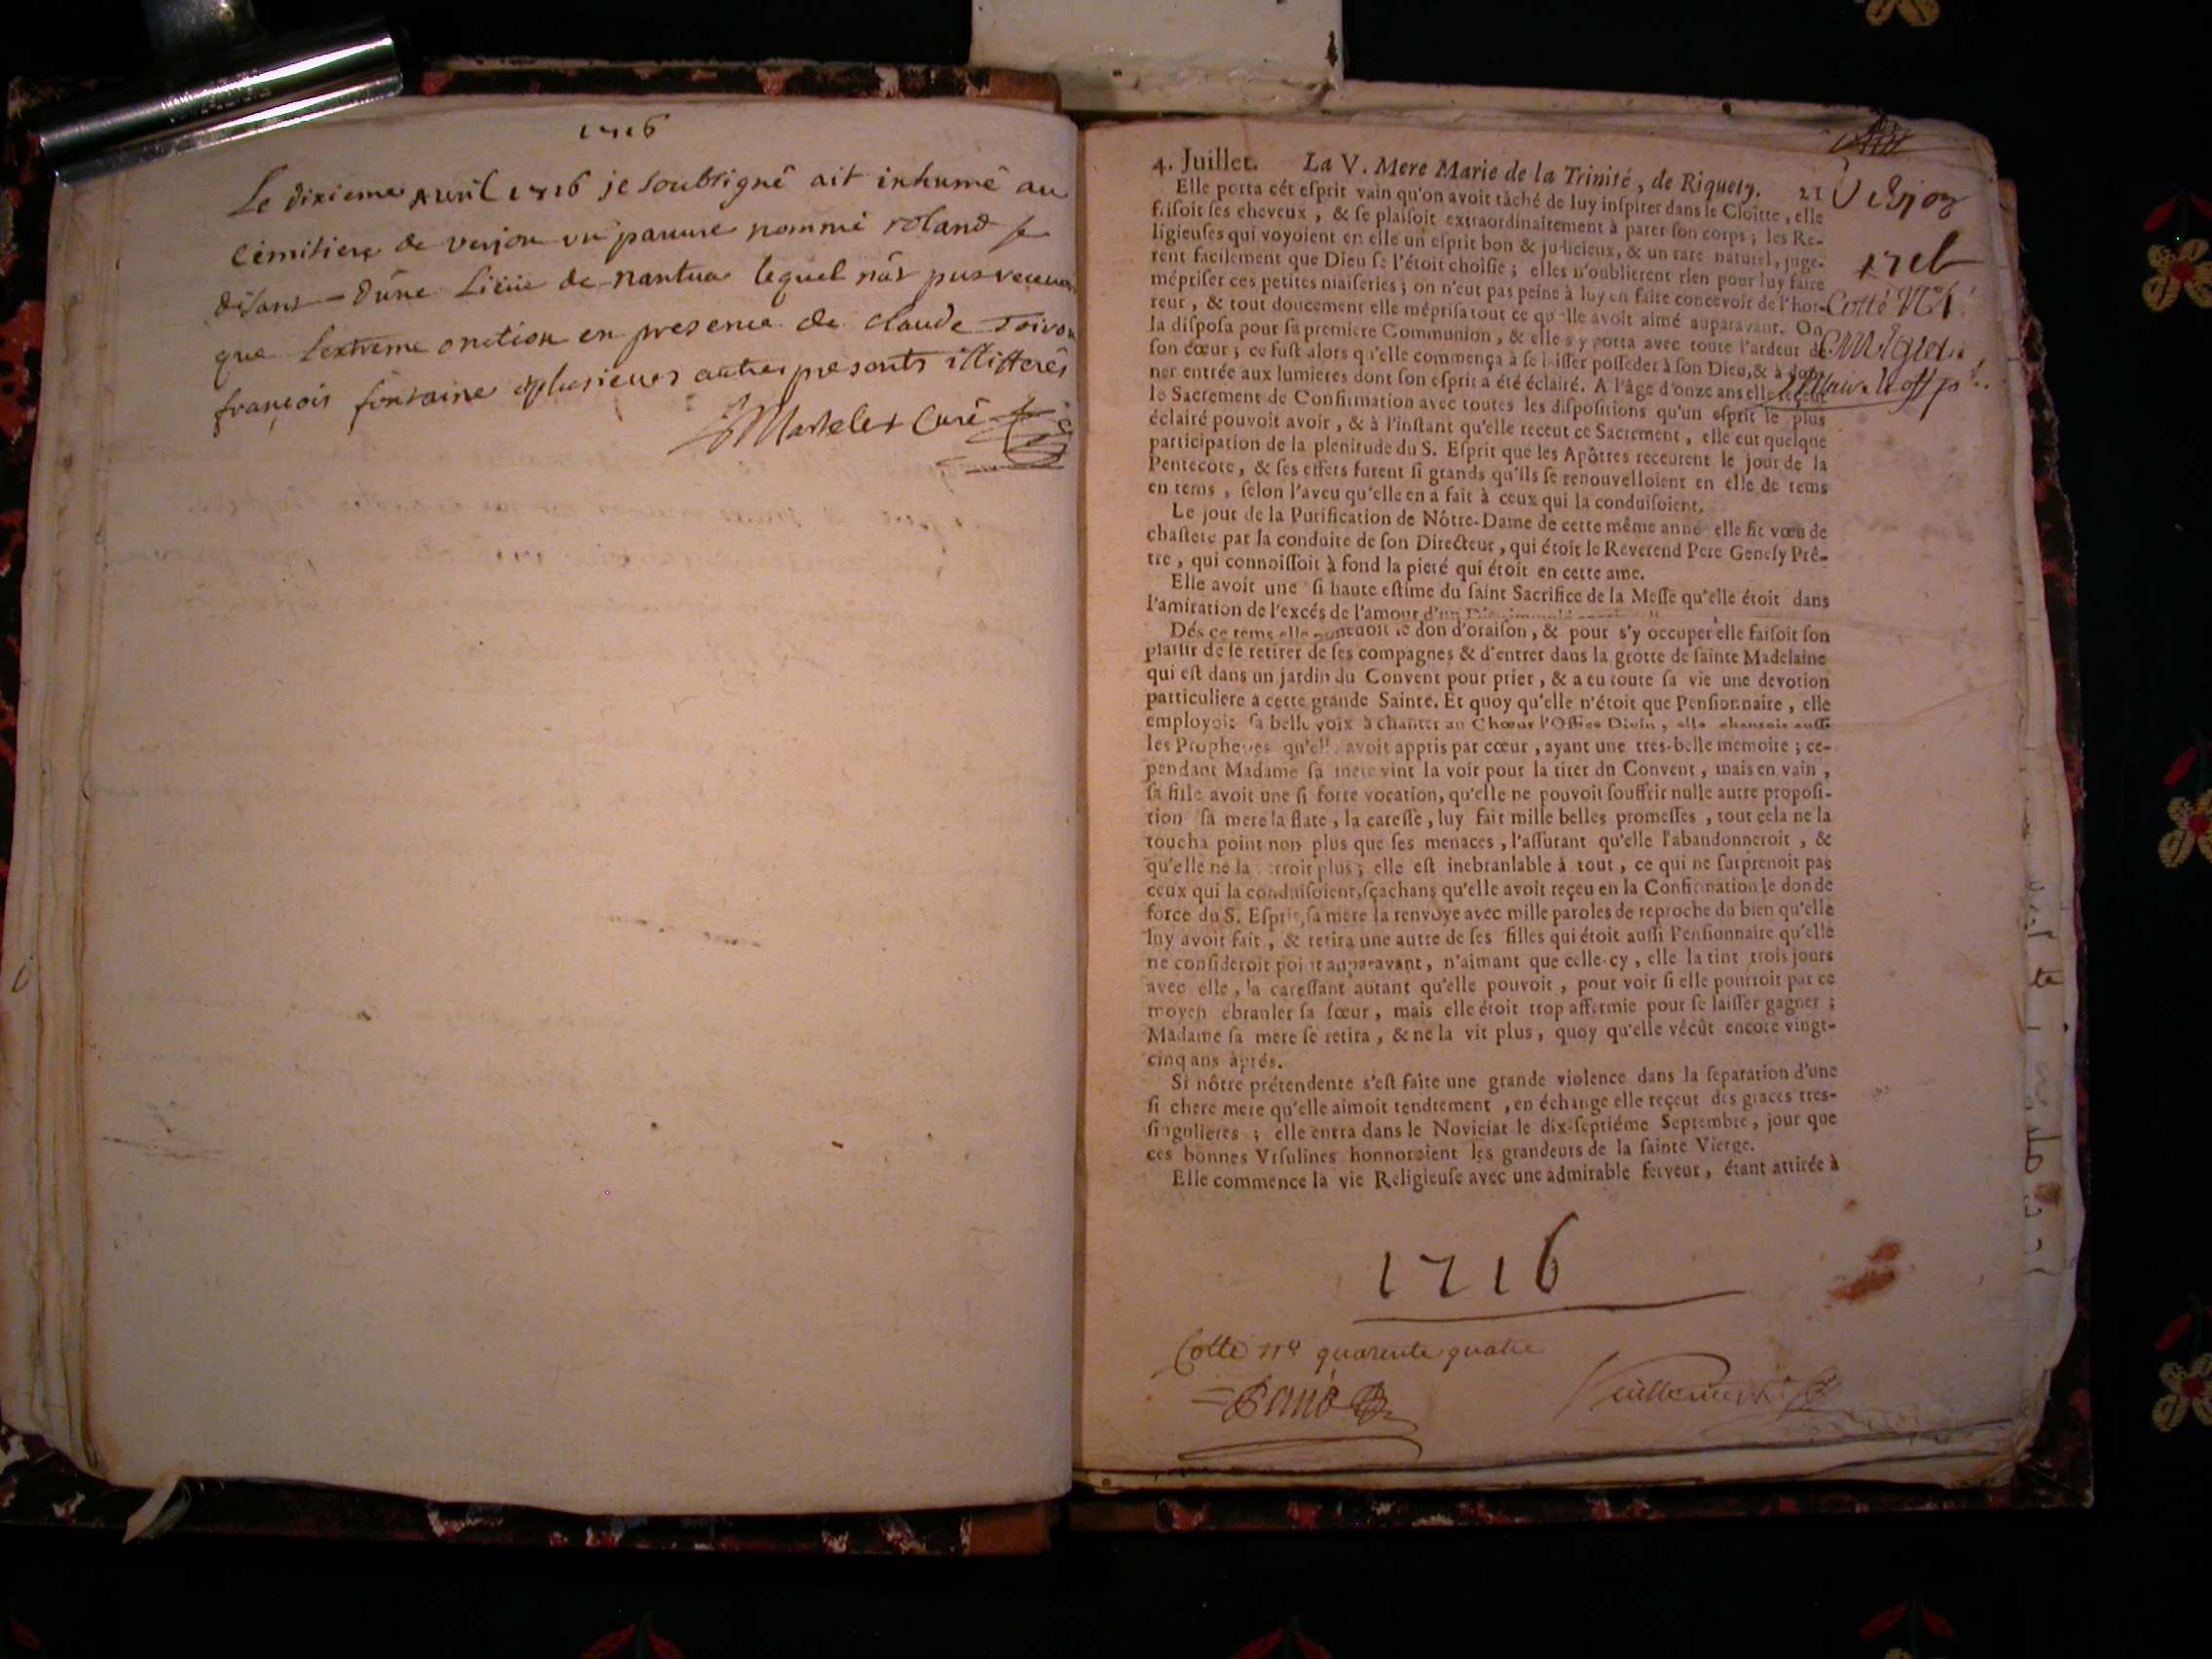 1716
Le dixieme Avril 1716 je soubsigné ait inhumé au
cemitiere de verjon un pauure nommé roland se
disant d'üne Lieüe de nantua lequel n'at pus
que l'extreme onction en presence de claude
françois fontaine & plusieurs autres presents illitterés
Martelet Curé
4. Juillet. La V. Mere Marie de la Trinité, de Riquety. 21
Elle porta cét esprit vain qu'on avoit tâché de luy inspirer dans le Cloître, elle
frisoit ses cheveux, & se plaisoit extraordinairement à parer son corps; les Re-
ligieuses qui voyoient en elle un esprit bon & judicieux, & un rare naturel, juge-
rent facilement que Dieu se l'étoit choisie; elles n'oublierent rien pour luy faire
mépriser ces petites niaiseries; on n'eut pas peine à luy en faire concevoir de l'hor-
reur, & tout doucement elle méprisa tout ce qu'elle avoit aimé auparavant. On
la disposa pour sa premiere Communion, & elle s'y porta avec toute l'ardeur de
son cœur; ce fust alors qu'elle commença à se laisser posseder à son Dieu, & à don-
ner entrée aux lumieres dont son esprit a été éclairé. A l'âge d'onze ans elle
le Sacrement de Confirmation avec toutes les dispositions qu'un esprit le plus
éclairé pouvoit avoir, & à l'instant qu'elle receut ce Sacrement, elle eut quelque
participation de la plenitude du S. Esprit que les Apôtres receurent le jour de la
Pentecôte, & ses effets furent si grands qu'ils se renouvelloient en elle de tems
en tems, selon l'aveu qu'elle en a fait à ceux qui la conduisoient.
Le jour de la Purification de Nôtre-Dame de cette même anné elle fit vœu de
chasteté par la conduite de son Directeur, qui étoit le Reverend Pere Genesy Prê-
tre, qui connoissoit à fond la pieté qui étoit en cette ame.
Elle avoit une si haute estime du saint Sacrifice de la Messe qu'elle étoit dans
l'amiration de l'excés de l'amour d'un
Dés ce tems elle don d'oraison, & pour s'y occuper elle faisoit son
plaisir de se retirer de ses compagnes & d'entrer dans la grotte de sainte Madelaine
qui est dans un jardin du Convent pour prier, & a eu toute sa vie une devotion
particuliere à cette grande Sainte. Et quoy qu'elle n'étoit que Pensionnaire, elle
employoit sa belle voix à chanter au Chœur l'Office Divin, elle chantoit aussi
les Propheties qu'elle avoit appris par cœur, ayant une tres-belle memoire; ce-
pendant Madame sa mere vint la voir pour la tirer du Convent, mais en vain,
sa fille avoit une si forte vocation, qu'elle ne pouvoit souffrir nulle autre proposi-
tion sa mere la flate, la caresse, luy fait mille belles promesses, tout cela ne la
toucha point non plus que ses menaces, l'assurant qu'elle l'abandonneroit, &
qu'elle ne la plus; elle est inebranlable à tout, ce qui ne surprenoit pas
ceux qui la conduisoient, sçachans qu'elle avoit reçeu en la Confirmation le don de
force du S. Esprit, sa mere la renvoye avec mille paroles de reproche du bien qu'elle
luy avoit fait, & retira une autre de ses filles qui étoit aussi Pensionnaire qu'elle
ne consideroit point auparavant, n'aimant que celle-cy, elle la tint trois jours
avec elle, la caressant autant qu'elle pouvoit, pour voir si elle pourroit par ce
moyen ébranler sa sœur, mais elle étoit trop affermie pour se laisser gagner;
Madame sa mere se retira, & ne la vit plus, quoy qu'elle vécût encore vingt-
cinq ans àprés.
Si nôtre prétendente s'est faite une grande violence dans la separation d'une
si chere mere qu'elle aimoit tendrement, en échange elle reçeut des graces tres-
singulieres; elle entra dans le Noviciat le dix-septiéme Septembre, jour que
ces bonnes Vrsulines honnoroient les grandeurs de la sainte Vierge.
Elle commence la vie Religieuse avec une admirable ferveur, étant attirée à
Verjon
1716
Cotté
1716
Cotte nº quarente quatre